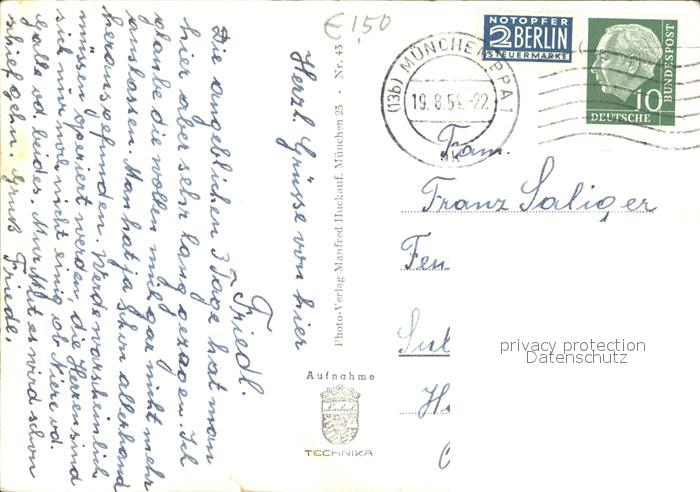 € 1,50
Herzl. Grüsse von hier
Friedl.
Die angeblichen 3 Tage hat man
hier aber sehr lang gezogen. Ich
glaube die wollen mich gar nicht mehr
auslassen. Man hat ja schon allerhand
herausgefunden. Werde warscheinlich
müssen operiert werden, die Herren sind
sich nur noch nicht einig ob Niere od.
Galle od. beides. Nur Mut es wird schon
schief gehn. Gruß Friedl.
Photo-Verlag Manfred Huckauf, München 25 - Nr. 45
Aufnahme
Linhof
TECHNIKA
NOTOPFER
2 BERLIN
STEUERMARKE
DEUTSCHE
BUNDESPOST
10
(13b) MÜNCHEN
19.8.54.-22
Fam.
Franz Saliger
privacy protection
Datenschutz